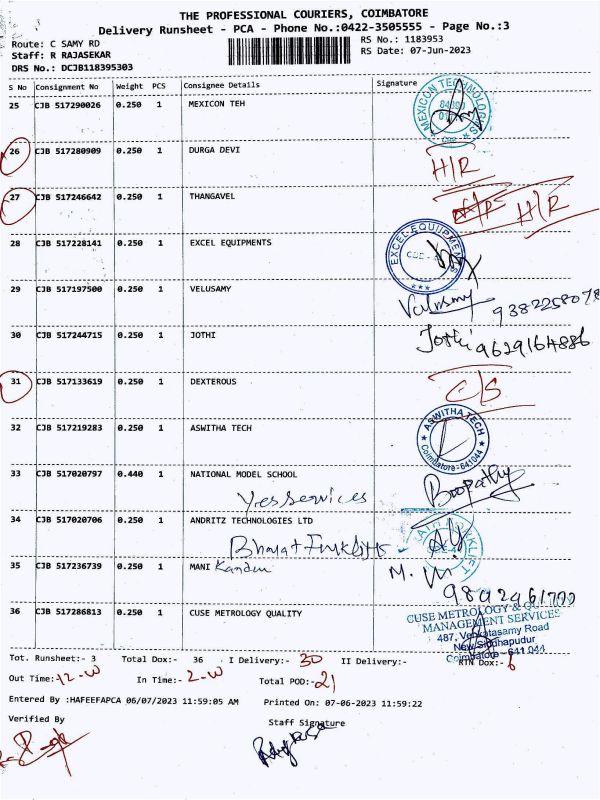 THE PROFESSIONAL COURIERS, COIMBATORE
Delivery Runsheet - PCA - Phone No.:0422-3505555 - Page No.:3
Route: C SAMY RD
RS No.: 1183953
Staff: R RAJASEKAR
RS Date: 07-Jun-2023
DRS No.: DCJB118395303
S No Consignment No Weight PCS Consignee Details Signature
25 CJB 517290026 0.250 1 MEXICON TEH
MEXICON TECHNOLOGIES
26 CJB 517280909 0.250 1 DURGA DEVI
H/R
27 CJB 517246642 0.250 1 THANGAVEL
H/R H/R
28 CJB 517228141 0.250 1 EXCEL EQUIPMENTS
EXCEL EQUIPMENTS
29 CJB 517197500 0.250 1 VELUSAMY
Velusamy 9382258078
30 CJB 517244715 0.250 1 JOTHI
Jothi 9629164886
31 CJB 517133619 0.250 1 DEXTEROUS
C/S
32 CJB 517219283 0.250 1 ASWITHA TECH
ASWITHA TECH
Coimbatore - 641044
33 CJB 517020797 0.440 1 NATIONAL MODEL SCHOOL
Boopathy
34 CJB 517020706 0.250 1 ANDRITZ TECHNOLOGIES LTD
Bharat Forklifts
35 CJB 517236739 0.250 1 MANI Kandan
36 CJB 517286813 0.250 1 CUSE METROLOGY QUALITY
CUSE METROLOGY & QUALITY
MANAGEMENT SERVICES
487, Venkatasamy Road
New Siddhapudur
Coimbatore - 641 044
Tot. Runsheet:- 3 Total Dox:- 36 I Delivery:- 30 II Delivery:- RTN Dox:- 6
Out Time:- 12-W In Time:- 2-W Total POD:- 21
Entered By :HAFEEFAPCA 06/07/2023 11:59:05 AM Printed On: 07-06-2023 11:59:22
Verified By Staff Signature